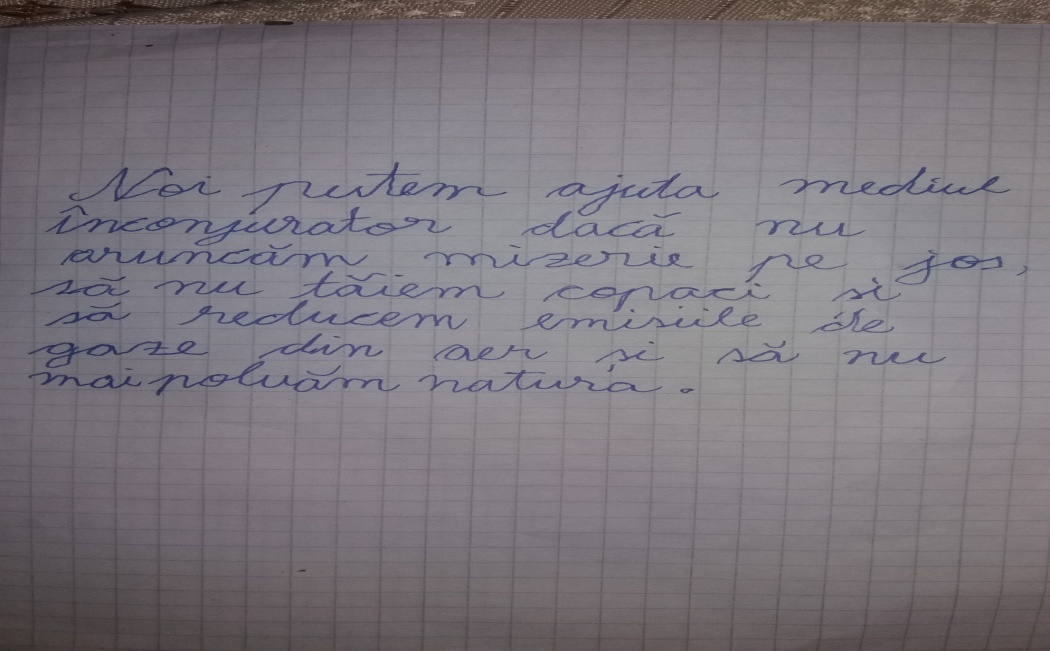 Noi putem ajuta mediul
înconjurator dacă nu
aruncăm mizerie pe jos,
să nu tăiem copaci si
să reducem emisiile de
gaze din aer si să nu
mai poluăm natura.